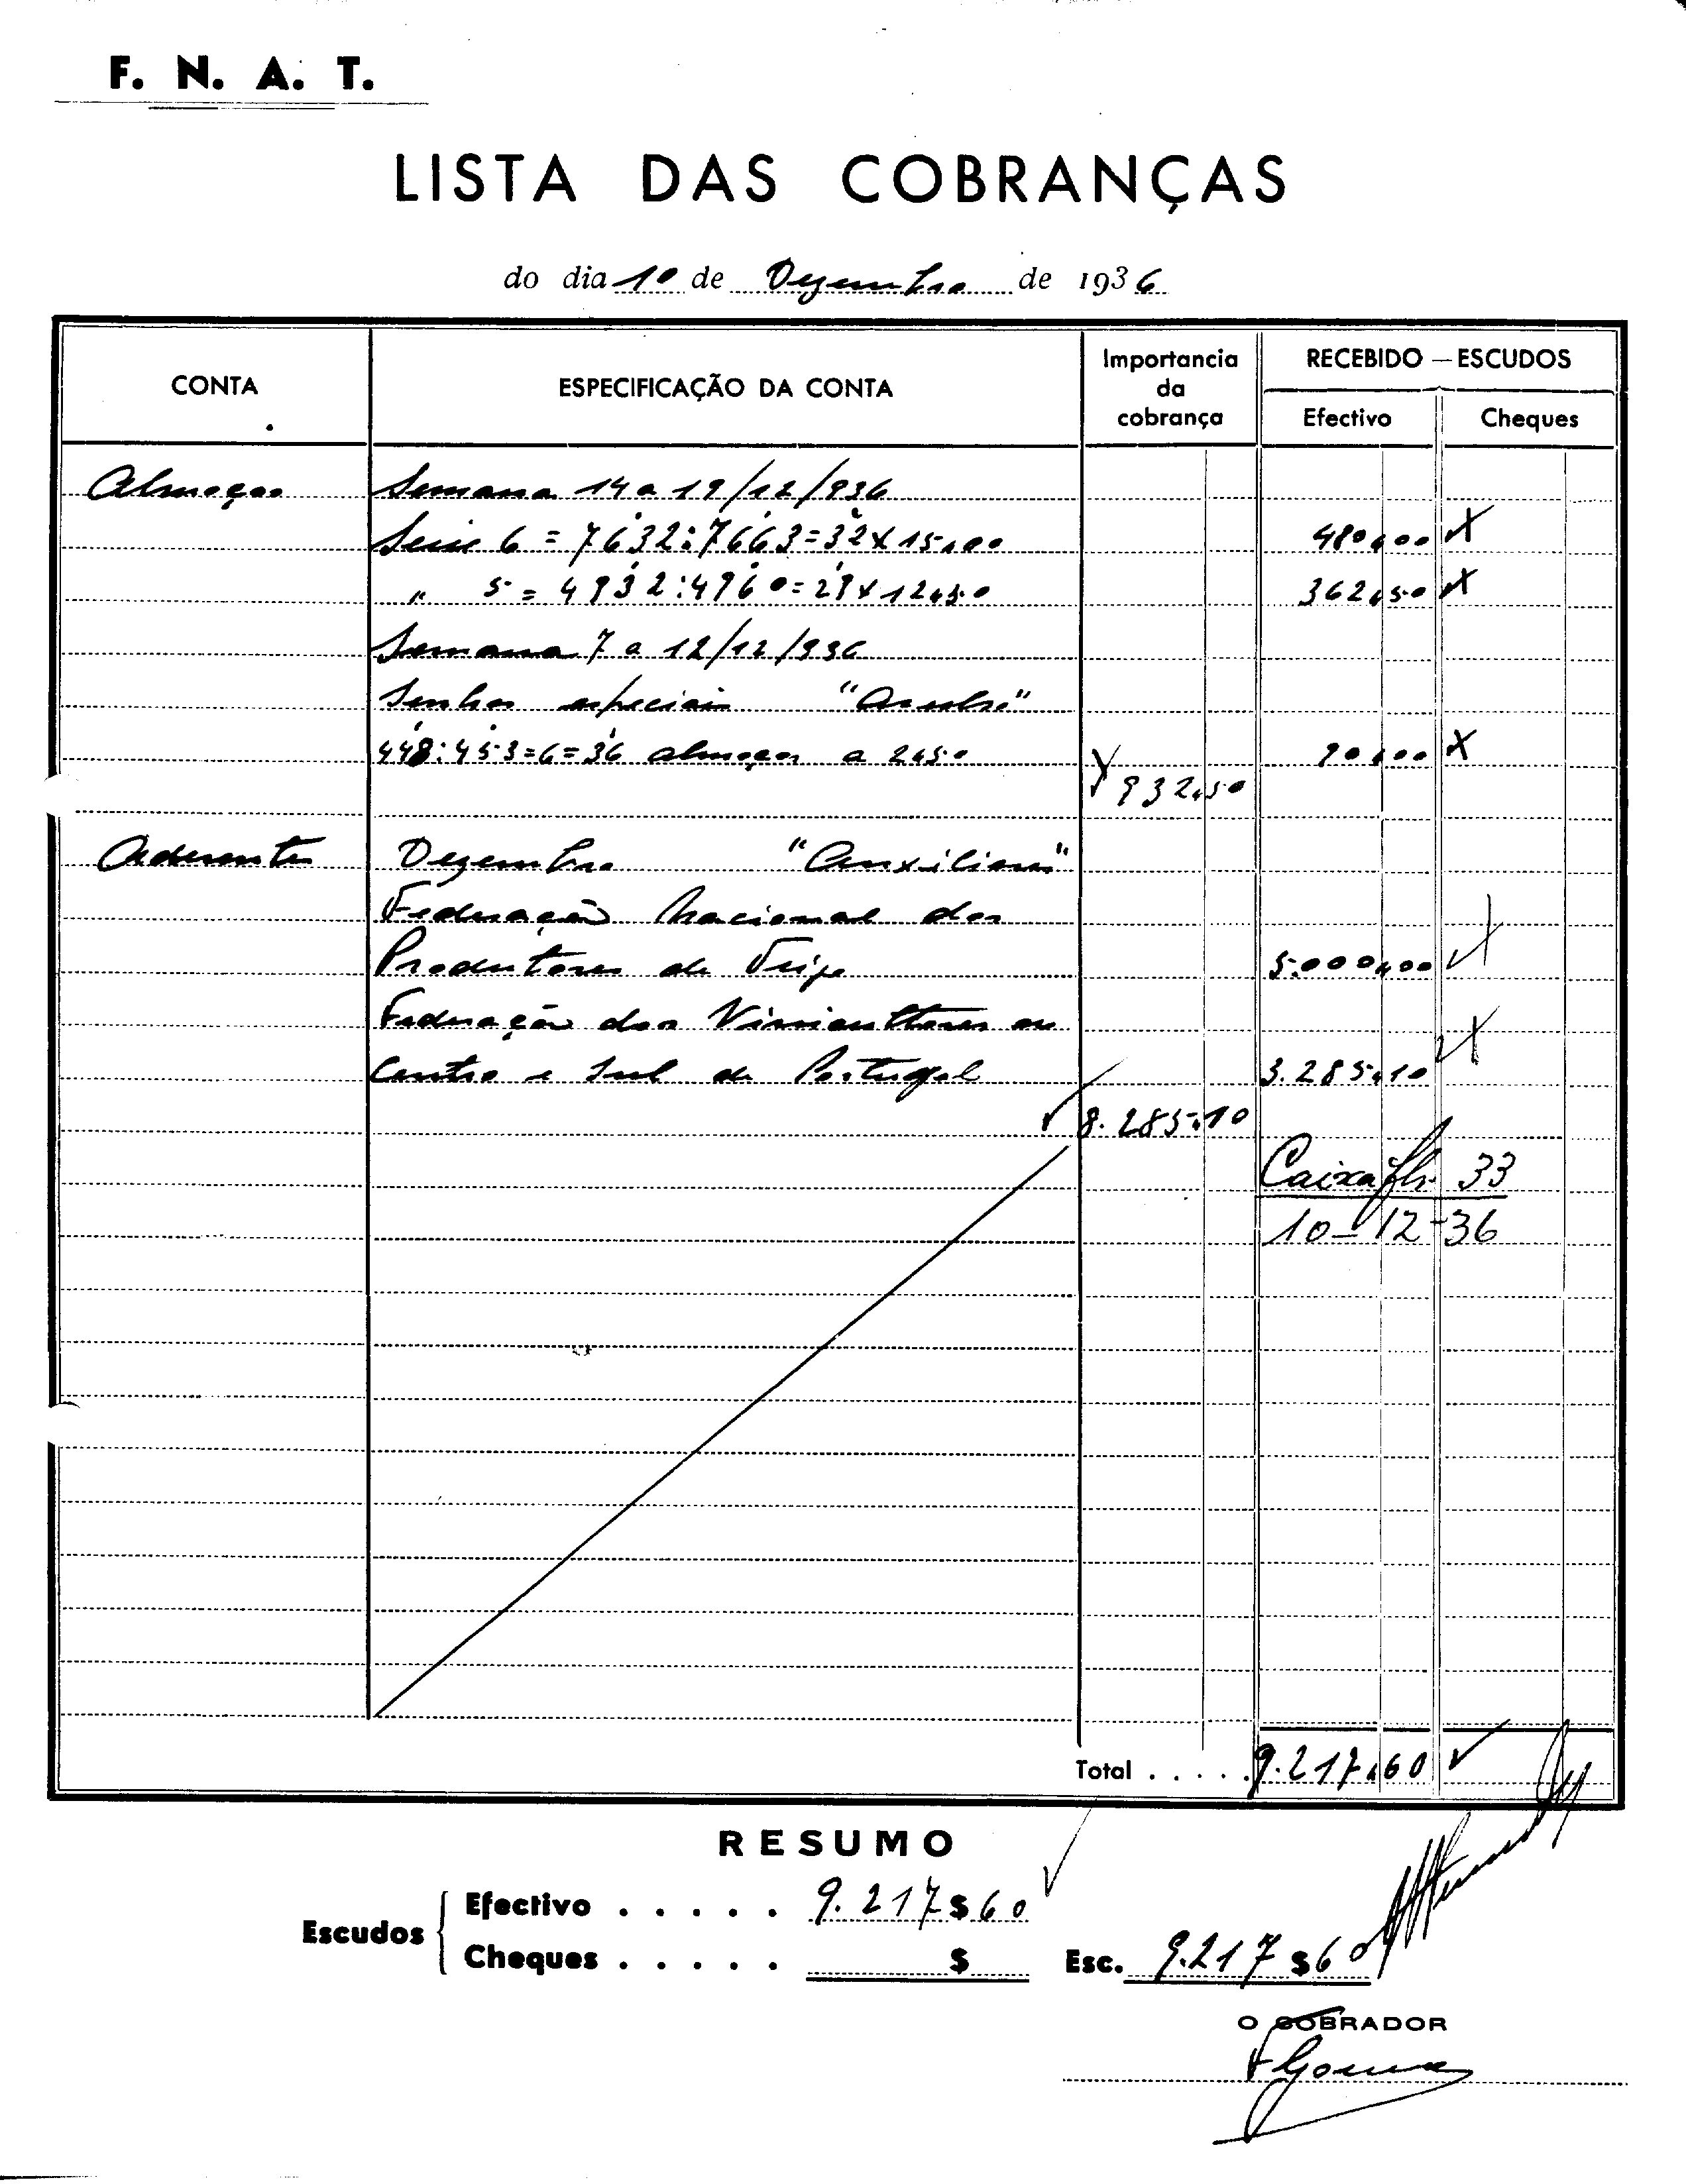 F. N. A. T.
LISTA DAS COBRANÇAS
do dia 10 de Dezembro de 1936
CONTA
ESPECIFICAÇÃO DA CONTA
Importancia da cobrança
RECEBIDO — ESCUDOS
Efectivo
Cheques
Almoços Semana 14 a 19/12/936
Serie 6 = 7632:7663=32x15,00 480,00
" 5 = 4932:4960=29x12,50 362,50
Semana 7 a 12/12/936
Senhas especiais
448:453=6=36 almoços a 2,50 90,00
932,50
Aderentes Dezembro "Auxiliares"
Federação Nacional dos
Produtores de Trigo 5.000,00
Federação dos Vinicultores do
Centro e Sul de Portugal 3.285,10
8.285,10
Caixa fls. 33
10-12-36
Total . . . . . 9.217,60
RESUMO
Escudos
Efectivo . . . . . 9.217$60
Cheques . . . . . $
Esc. 9.217$60
O COBRADOR
Gomes